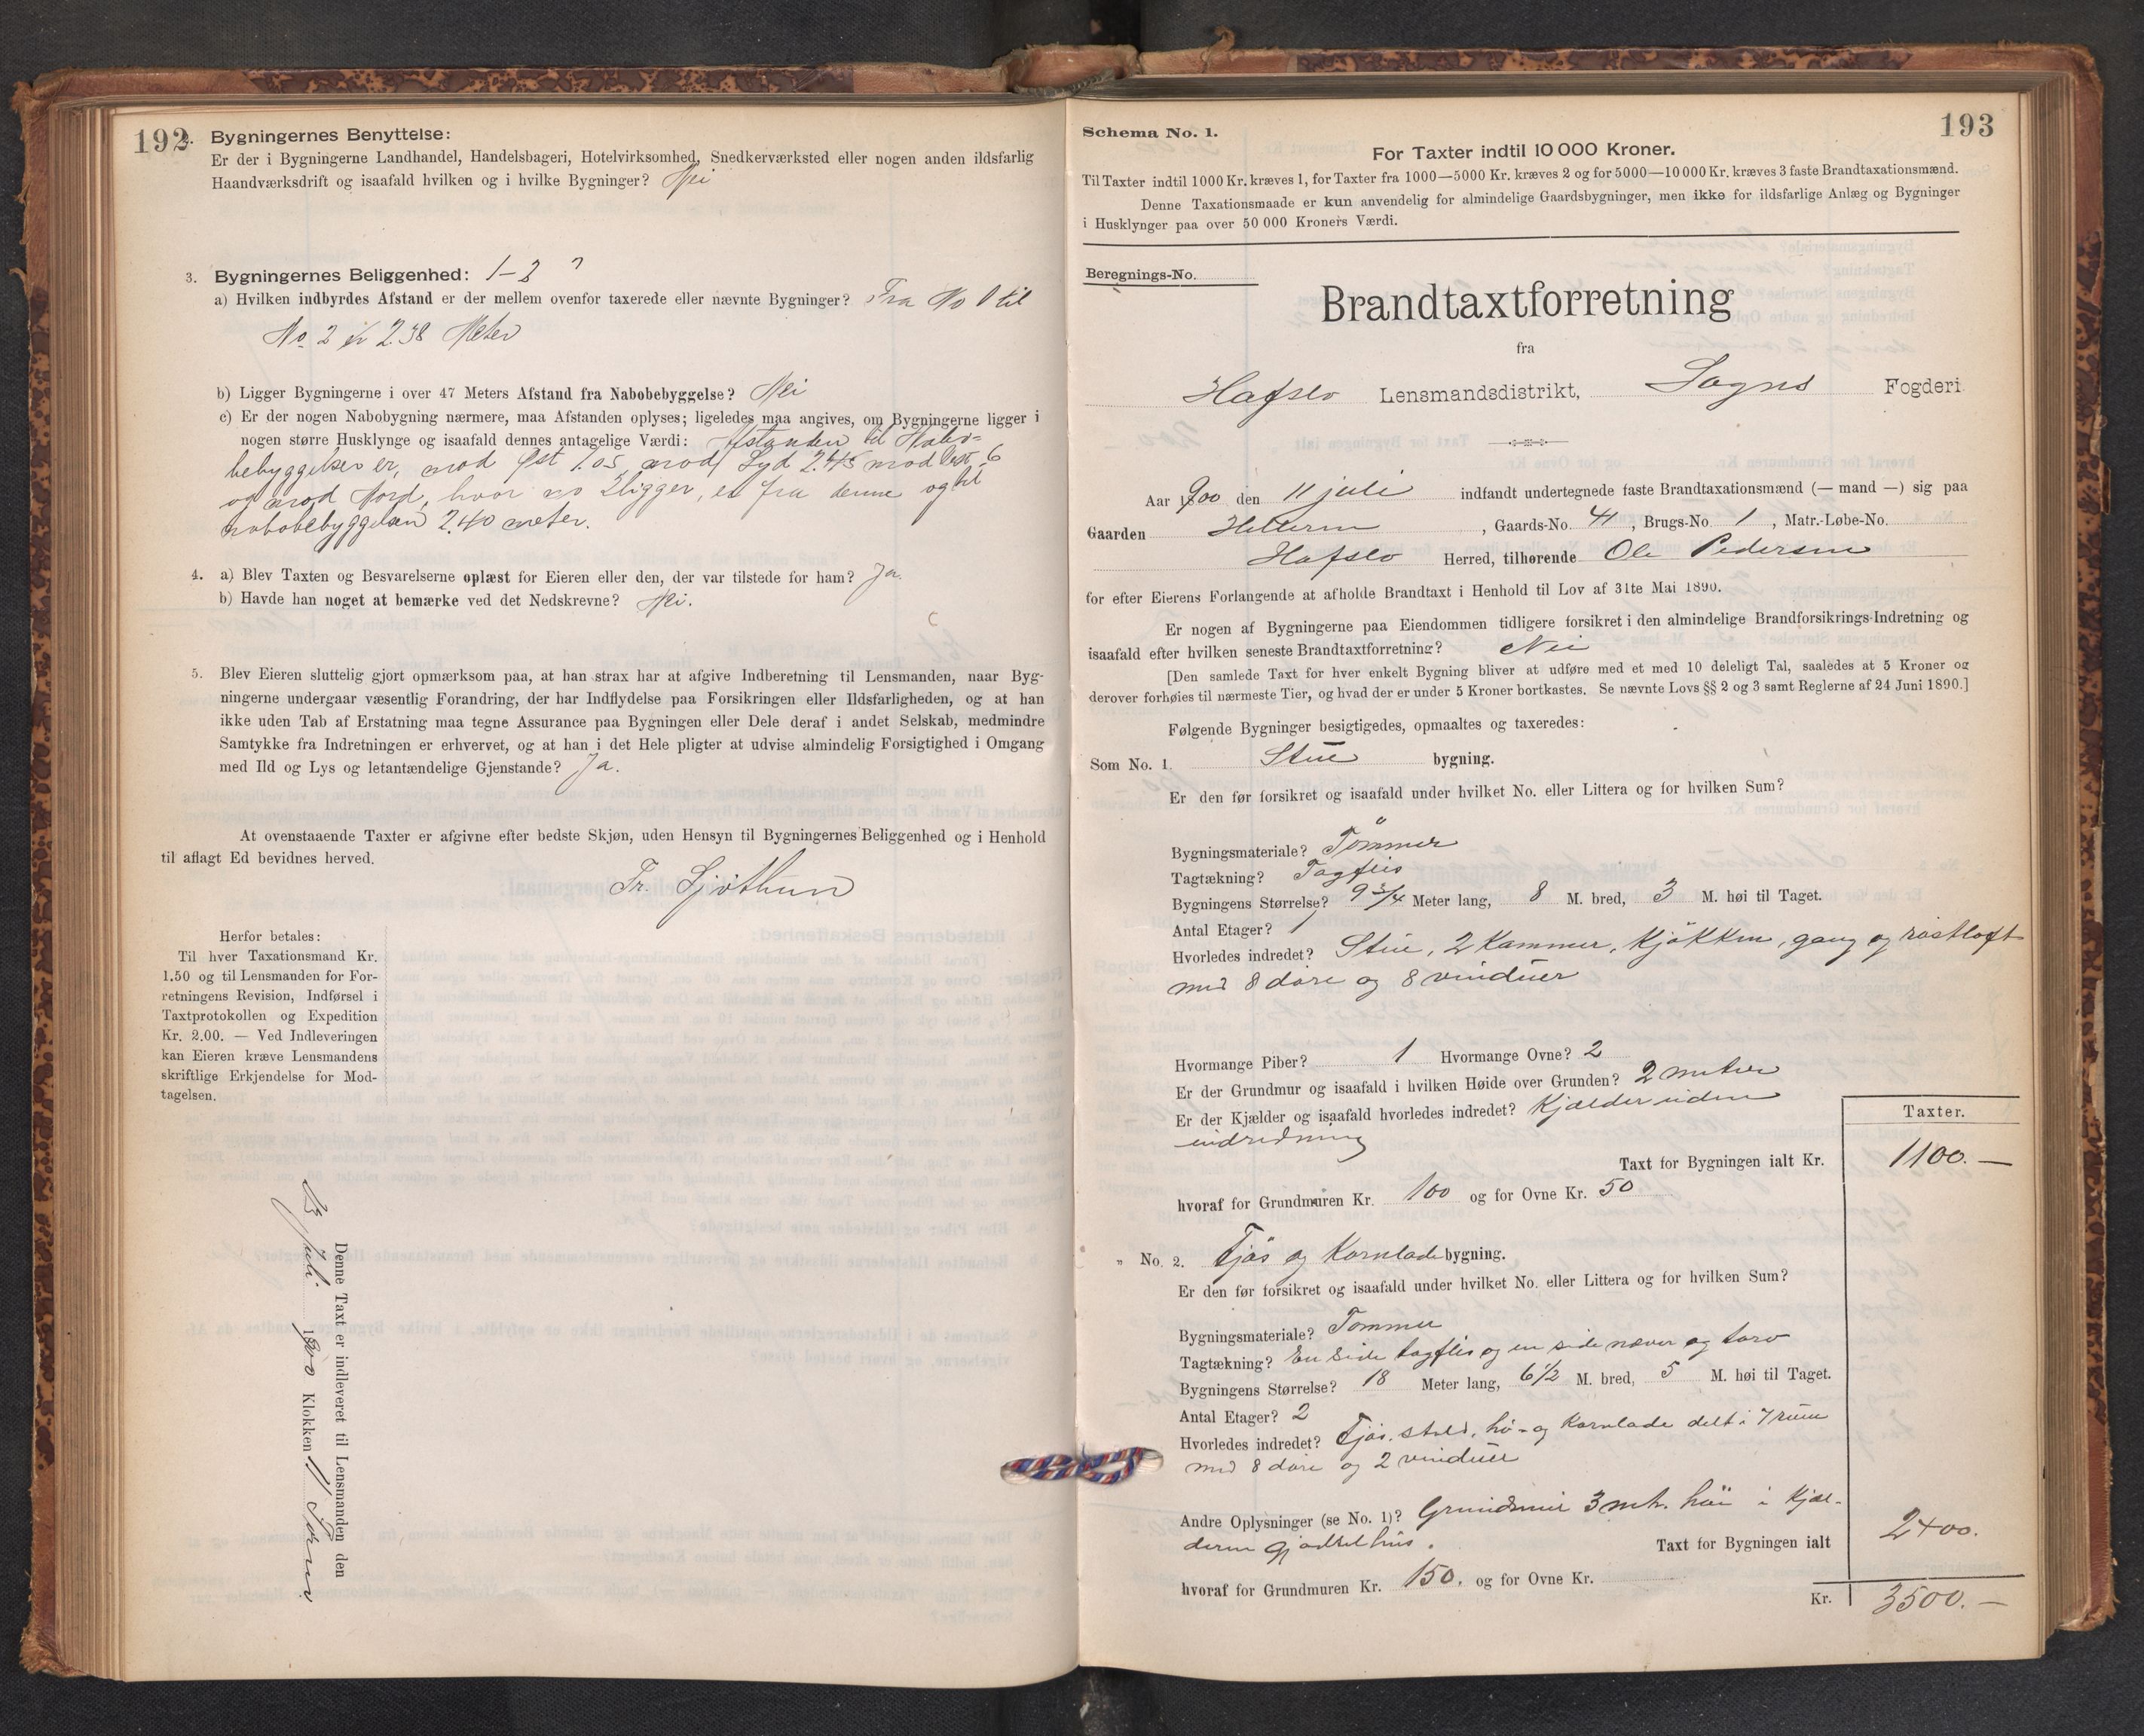 192
2. Bygningernes Benyttelse:
Er der i Bygningerne Landhandel, Handelsbageri, Hotelvirksomhed, Snedkerværksted eller nogen anden ildsfarlig
Haandværksdrift og isaafald hvilken og i hvilke Bygninger? Nei
3. Bygningernes Beliggenhed: 1–2 ?
a) Hvilken indbyrdes Afstand er der mellem ovenfor taxerede eller nævnte Bygninger? Fra No 1 til
No. 2 er 2.38 Meter
b) Ligger Bygningerne i over 47 Meters Afstand fra Nabobebyggelse? Nei
c) Er der nogen Nabobygning nærmere, maa Afstanden oplyses; ligeledes maa angives, om Bygningerne ligger i
nogen større Husklynge og isaafald dennes antagelige Værdi: Afstanden til Nabo-
bebyggelser er, mod Øst 1.05, mod Syd 2.45 mod Vest 6
og mod Nord, hvor no 2 ligger, er fra denne og til
nabobebyggelsen 2.40 meter.
4. a) Blev Taxten og Besvarelserne oplæst for Eieren eller den, der var tilstede for ham? Ja.
b) Havde han noget at bemærke ved det Nedskrevne? Nei.
5. Blev Eieren sluttelig gjort opmærksom paa, at han strax har at afgive Indberetning til Lensmanden, naar Byg-
ningerne undergaar væsentlig Forandring, der har Indflydelse paa Forsikringen eller Ildsfarligheden, og at han
ikke uden Tab af Erstatning maa tegne Assurance paa Bygningen eller Dele deraf i andet Selskab, medmindre
Samtykke fra Indretningen er erhvervet, og at han i det Hele pligter at udvise almindelig Forsigtighed i Omgang
med Ild og Lys og letantændelige Gjenstande? Ja.
At ovenstaaende Taxter er afgivne efter bedste Skjøn, uden Hensyn til Bygningernes Beliggenhed og i Henhold
til aflagt Ed bevidnes herved.
Fr. Sjøthun
Herfor betales:
Til hver Taxationsmand Kr.
1.50 og til Lensmanden for For-
retningens Revision, Indførsel i
Taxtprotokollen og Expedition
Kr. 2.00. — Ved Indleveringen
kan Eieren kræve Lensmandens
skriftlige Erkjendelse for Mod-
tagelsen.
Denne Taxt er indleveret til Lensmanden den
Juli 1900 Klokken 11
193
Schema No. 1.
For Taxter indtil 10 000 Kroner.
Til Taxter indtil 1000 Kr. kræves 1, for Taxter fra 1000—5000 Kr. kræves 2 og for 5000—10 000 Kr. kræves 3 faste Brandtaxationsmænd.
Denne Taxationsmaade er kun anvendelig for almindelige Gaardsbygninger, men ikke for ildsfarlige Anlæg og Bygninger
i Husklynger paa over 50 000 Kroners Værdi.
Beregnings-No.
Brandtaxtforretning
fra
Hafslo Lensmandsdistrikt, Sogns Fogderi
Aar 1900 den 11 juli indfandt undertegnede faste Brandtaxationsmænd (— mand —) sig paa
Gaarden Hilleren, Gaards-No. 41, Brugs-No. 1, Matr.-Løbe-No.
Hafslo Herred, tilhørende Ole Pedersen
for efter Eierens Forlangende at afholde Brandtaxt i Henhold til Lov af 31te Mai 1890.
Er nogen af Bygningerne paa Eiendommen tidligere forsikret i den almindelige Brandforsikrings-Indretning og
isaafald efter hvilken seneste Brandtaxtforretning? Nei
[Den samlede Taxt for hver enkelt Bygning bliver at udføre med et med 10 deleligt Tal, saaledes at 5 Kroner og
derover forhøies til nærmeste Tier, og hvad der er under 5 Kroner bortkastes. Se nævnte Lovs §§ 2 og 3 samt Reglerne af 24 Juni 1890.]
Følgende Bygninger besigtigedes, opmaaltes og taxeredes:
Som No. 1. Stue bygning.
Er den før forsikret og isaafald under hvilket No. eller Littera og for hvilken Sum?
Bygningsmateriale? Tömmer
Tagtækning? Tagflis
Bygningens Størrelse? 9 3/4 Meter lang, 8 M. bred, 3 M. høi til Taget.
Antal Etager? 1
Hvorledes indredet? Stue, 2 Kammer, Kjökken, gang og röstloft
med 8 döre og 8 vinduer
Hvormange Piber? 1 Hvormange Ovne? 2
Er der Grundmur og isaafald i hvilken Høide over Grunden? 2 meter
Er der Kjælder og isaafald hvorledes indredet? Kjælder uden
indredning
Taxter.
Taxt for Bygningen ialt Kr. 1100.—
hvoraf for Grundmuren Kr. 100 og for Ovne Kr. 50
„ No. 2. Fjös og Kornlade bygning.
Er den før forsikret og isaafald under hvilket No. eller Littera og for hvilken Sum?
Bygningsmateriale? Tömmer
Tagtækning? En side tagflis og en side næver og torv
Bygningens Størrelse? 18 Meter lang, 6 1/2 M. bred, 5 M. høi til Taget.
Antal Etager? 2
Hvorledes indredet? Fjös, stald, hö- og Kornlade delt i 7 rum
med 8 döre og 2 vinduer
Andre Oplysninger (se No. 1)? Grundmur 3 mtr. höi i Kjæl-
deren gjödselhus.
Taxt for Bygningen ialt 2400.
hvoraf for Grundmuren Kr. 150. og for Ovne Kr.
Kr. 3500.—